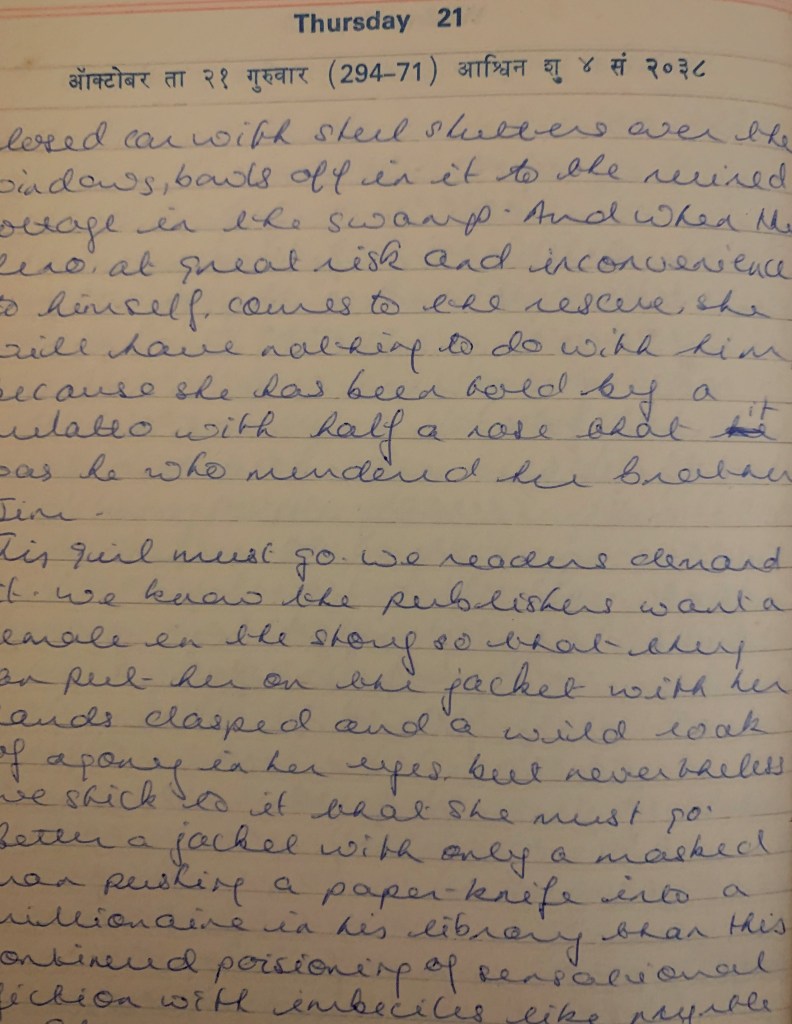 Thursday 21
ऑक्टोबर ता २१ गुरुवार (294-71) आश्विन शु ४ सं २०३८
losed car with steel shutters over the
indows, bowls off in it to the ruined
ottage in the swamp. And when the
ero, at great risk and inconvenience
to himself, comes to the rescue, she
will have nothing to do with him
ecause she has been told by a
ulatto with half a nose that it
was he who murdered her brother
Jim.
his girl must go. we readers demand
it. we know the publishers want a
emale in the story so that they
an put her on the jacket with her
ands clasped and a wild look
of agony in her eyes, but nevertheless
we stick to it that she must go.
Better a jacket with only a masked
man pushing a paper-knife into a
millionaire in his library than this
ontinued poisioning of sensational
fiction with imbeciles like